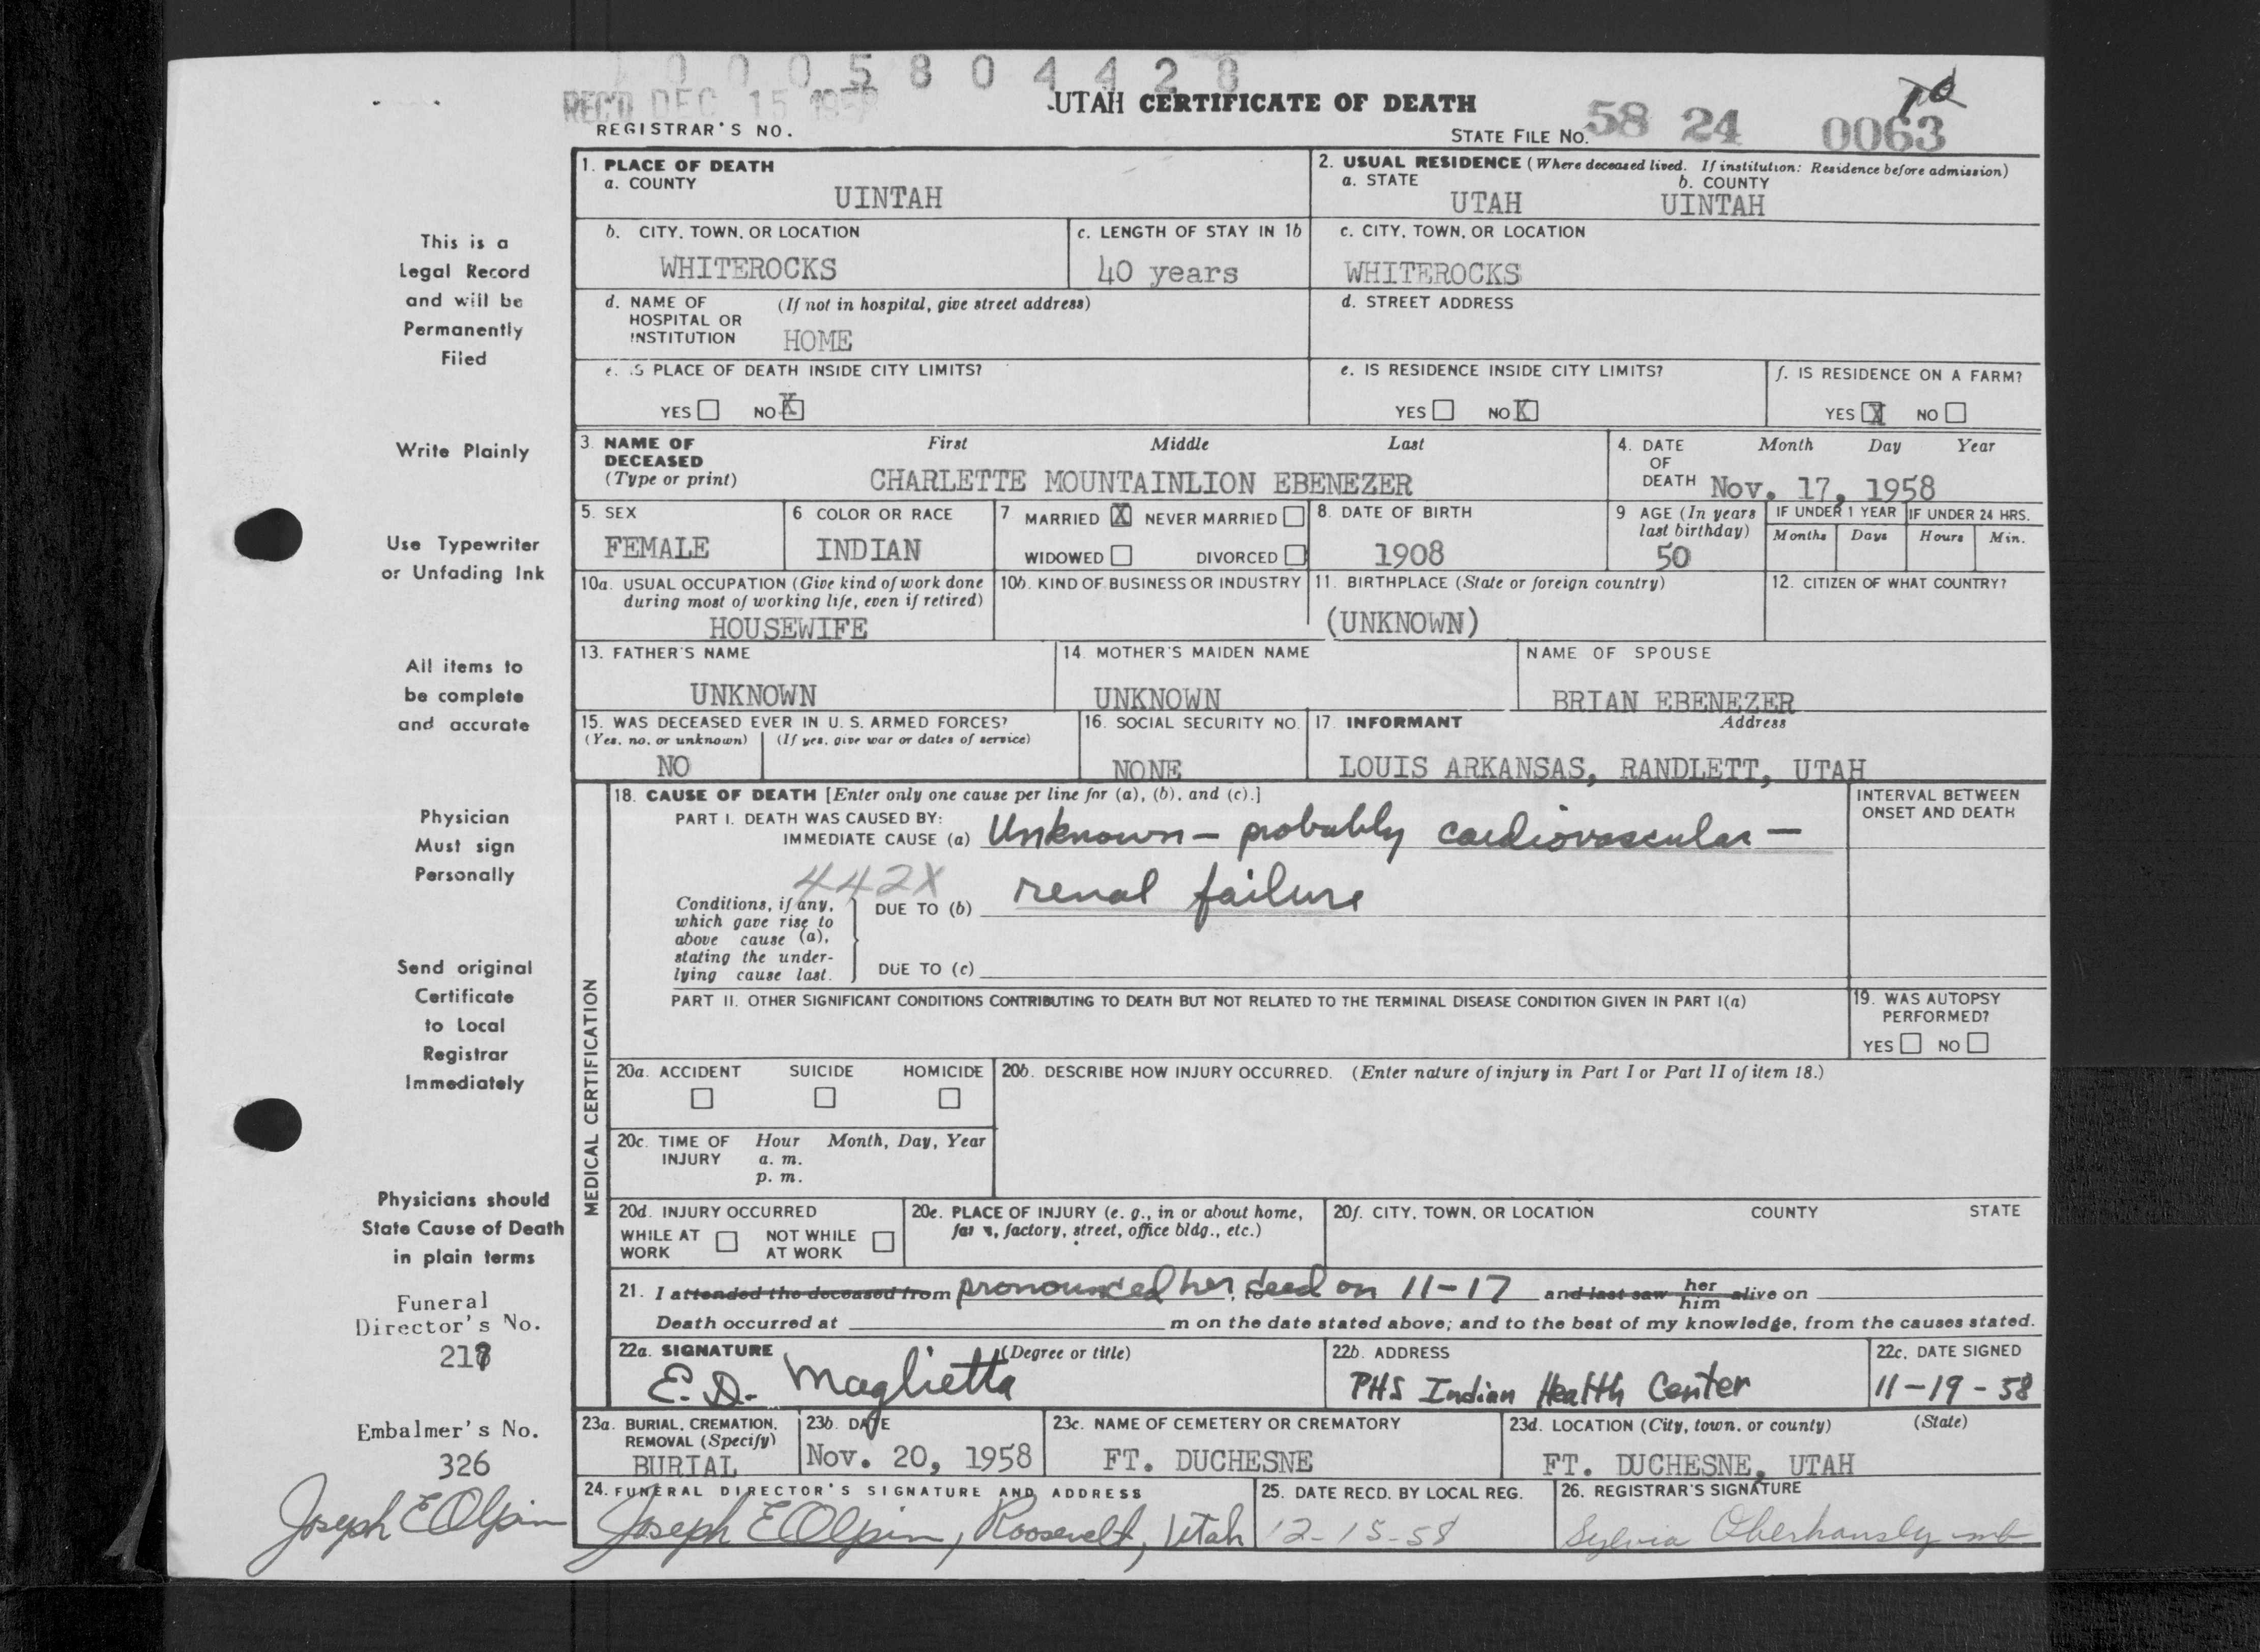 0 0 0 5 8 0 4 4 2 8
REC'D DEC 15 1958
UTAH CERTIFICATE OF DEATH
REGISTRAR'S NO.
STATE FILE NO. 58 24 0063
1. PLACE OF DEATH
a. COUNTY
UINTAH
2. USUAL RESIDENCE (Where deceased lived. If institution: Residence before admission)
a. STATE b. COUNTY
UTAH UINTAH
b. CITY, TOWN, OR LOCATION
WHITEROCKS
c. LENGTH OF STAY IN 1b
40 years
c. CITY, TOWN, OR LOCATION
WHITEROCKS
d. NAME OF (If not in hospital, give street address)
HOSPITAL OR
INSTITUTION HOME
d. STREET ADDRESS
e. IS PLACE OF DEATH INSIDE CITY LIMITS?
YES NO X
e. IS RESIDENCE INSIDE CITY LIMITS?
YES NO X
f. IS RESIDENCE ON A FARM?
YES X NO
3. NAME OF First Middle Last
DECEASED
(Type or print) CHARLETTE MOUNTAINLION EBENEZER
4. DATE Month Day Year
OF
DEATH Nov. 17, 1958
5. SEX
FEMALE
6 COLOR OR RACE
INDIAN
7 MARRIED X NEVER MARRIED
WIDOWED DIVORCED
8. DATE OF BIRTH
1908
9 AGE (In years
last birthday)
50
IF UNDER 1 YEAR IF UNDER 24 HRS.
Months Days Hours Min.
10a. USUAL OCCUPATION (Give kind of work done
during most of working life, even if retired)
HOUSEWIFE
10b. KIND OF BUSINESS OR INDUSTRY
11. BIRTHPLACE (State or foreign country)
(UNKNOWN)
12. CITIZEN OF WHAT COUNTRY?
13. FATHER'S NAME
UNKNOWN
14. MOTHER'S MAIDEN NAME
UNKNOWN
NAME OF SPOUSE
BRIAN EBENEZER
15. WAS DECEASED EVER IN U. S. ARMED FORCES?
(Yes, no, or unknown) (If yes, give war or dates of service)
NO
16. SOCIAL SECURITY NO.
NONE
17. INFORMANT Address
LOUIS ARKANSAS, RANDLETT, UTAH
MEDICAL CERTIFICATION
18. CAUSE OF DEATH [Enter only one cause per line for (a), (b), and (c).]
PART I. DEATH WAS CAUSED BY:
IMMEDIATE CAUSE (a) Unknown - probably cardiovascular -
442X
Conditions, if any,
which gave rise to
above cause (a),
stating the under-
lying cause last.
DUE TO (b) renal failure
DUE TO (c)
INTERVAL BETWEEN
ONSET AND DEATH
PART II. OTHER SIGNIFICANT CONDITIONS CONTRIBUTING TO DEATH BUT NOT RELATED TO THE TERMINAL DISEASE CONDITION GIVEN IN PART I(a)
19. WAS AUTOPSY
PERFORMED?
YES NO
20a. ACCIDENT SUICIDE HOMICIDE
20b. DESCRIBE HOW INJURY OCCURRED. (Enter nature of injury in Part I or Part II of item 18.)
20c. TIME OF Hour Month, Day, Year
INJURY a. m.
p. m.
20d. INJURY OCCURRED
WHILE AT NOT WHILE
WORK AT WORK
20e. PLACE OF INJURY (e. g., in or about home,
farm, factory, street, office bldg., etc.)
20f. CITY, TOWN, OR LOCATION COUNTY STATE
21. I attended the deceased from pronounced her dead on 11-17 and last saw her him alive on
Death occurred at m on the date stated above; and to the best of my knowledge, from the causes stated.
22a. SIGNATURE (Degree or title)
E. D. Maglietta
22b. ADDRESS
PHS Indian Health Center
22c. DATE SIGNED
11-19-58
23a. BURIAL, CREMATION,
REMOVAL (Specify)
BURIAL
23b. DATE
Nov. 20, 1958
23c. NAME OF CEMETERY OR CREMATORY
FT. DUCHESNE
23d. LOCATION (City, town, or county) (State)
FT. DUCHESNE, UTAH
24. FUNERAL DIRECTOR'S SIGNATURE AND ADDRESS
Joseph E Olpin, Roosevelt, Utah
25. DATE RECD. BY LOCAL REG.
12-15-58
26. REGISTRAR'S SIGNATURE
Sylvia Oberhansly
This is a
Legal Record
and will be
Permanently
Filed
Write Plainly
Use Typewriter
or Unfading Ink
All items to
be complete
and accurate
Physician
Must sign
Personally
Send original
Certificate
to Local
Registrar
Immediately
Physicians should
State Cause of Death
in plain terms
Funeral
Director's No.
Embalmer's No.
326
Joseph E Olpin